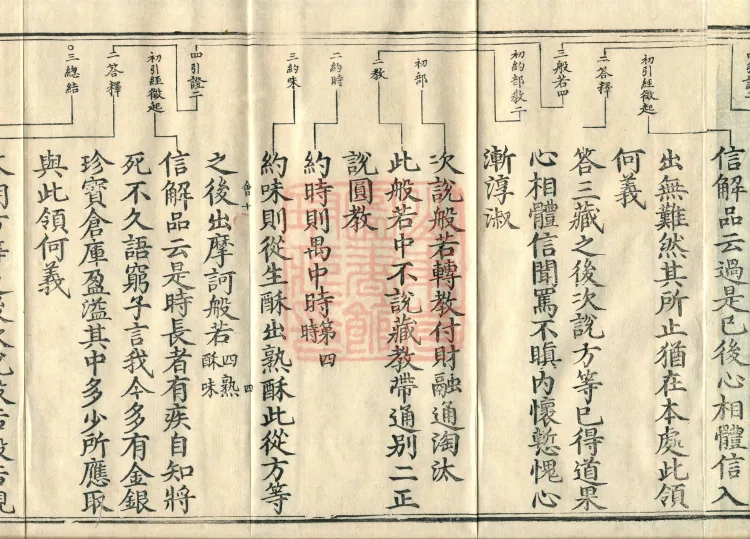 四引證二
初引經徵起
二答釋
三般若四
初約部教二
初部
二教
二約時
三約味
四引證二
初引經徵起
二答釋
三總結
信解品云過是已後心相體信入
出無難然其所止猶在本處此領
何義
答三藏之後次說方等已得道果
心相體信聞罵不瞋內懷慙愧心
漸淳淑
次說般若轉教付財融通淘汰
此般若中不說藏教帶通別二正
說圓教
約時則禺中時第四時
約味則從生酥出熟酥此從方等
之後出摩訶般若四熟酥味
會十
四
信解品云是時長者有疾自知將
死不久語窮子言我今多有金銀
珍寶倉庫盈溢其中多少所應取
與此領何義